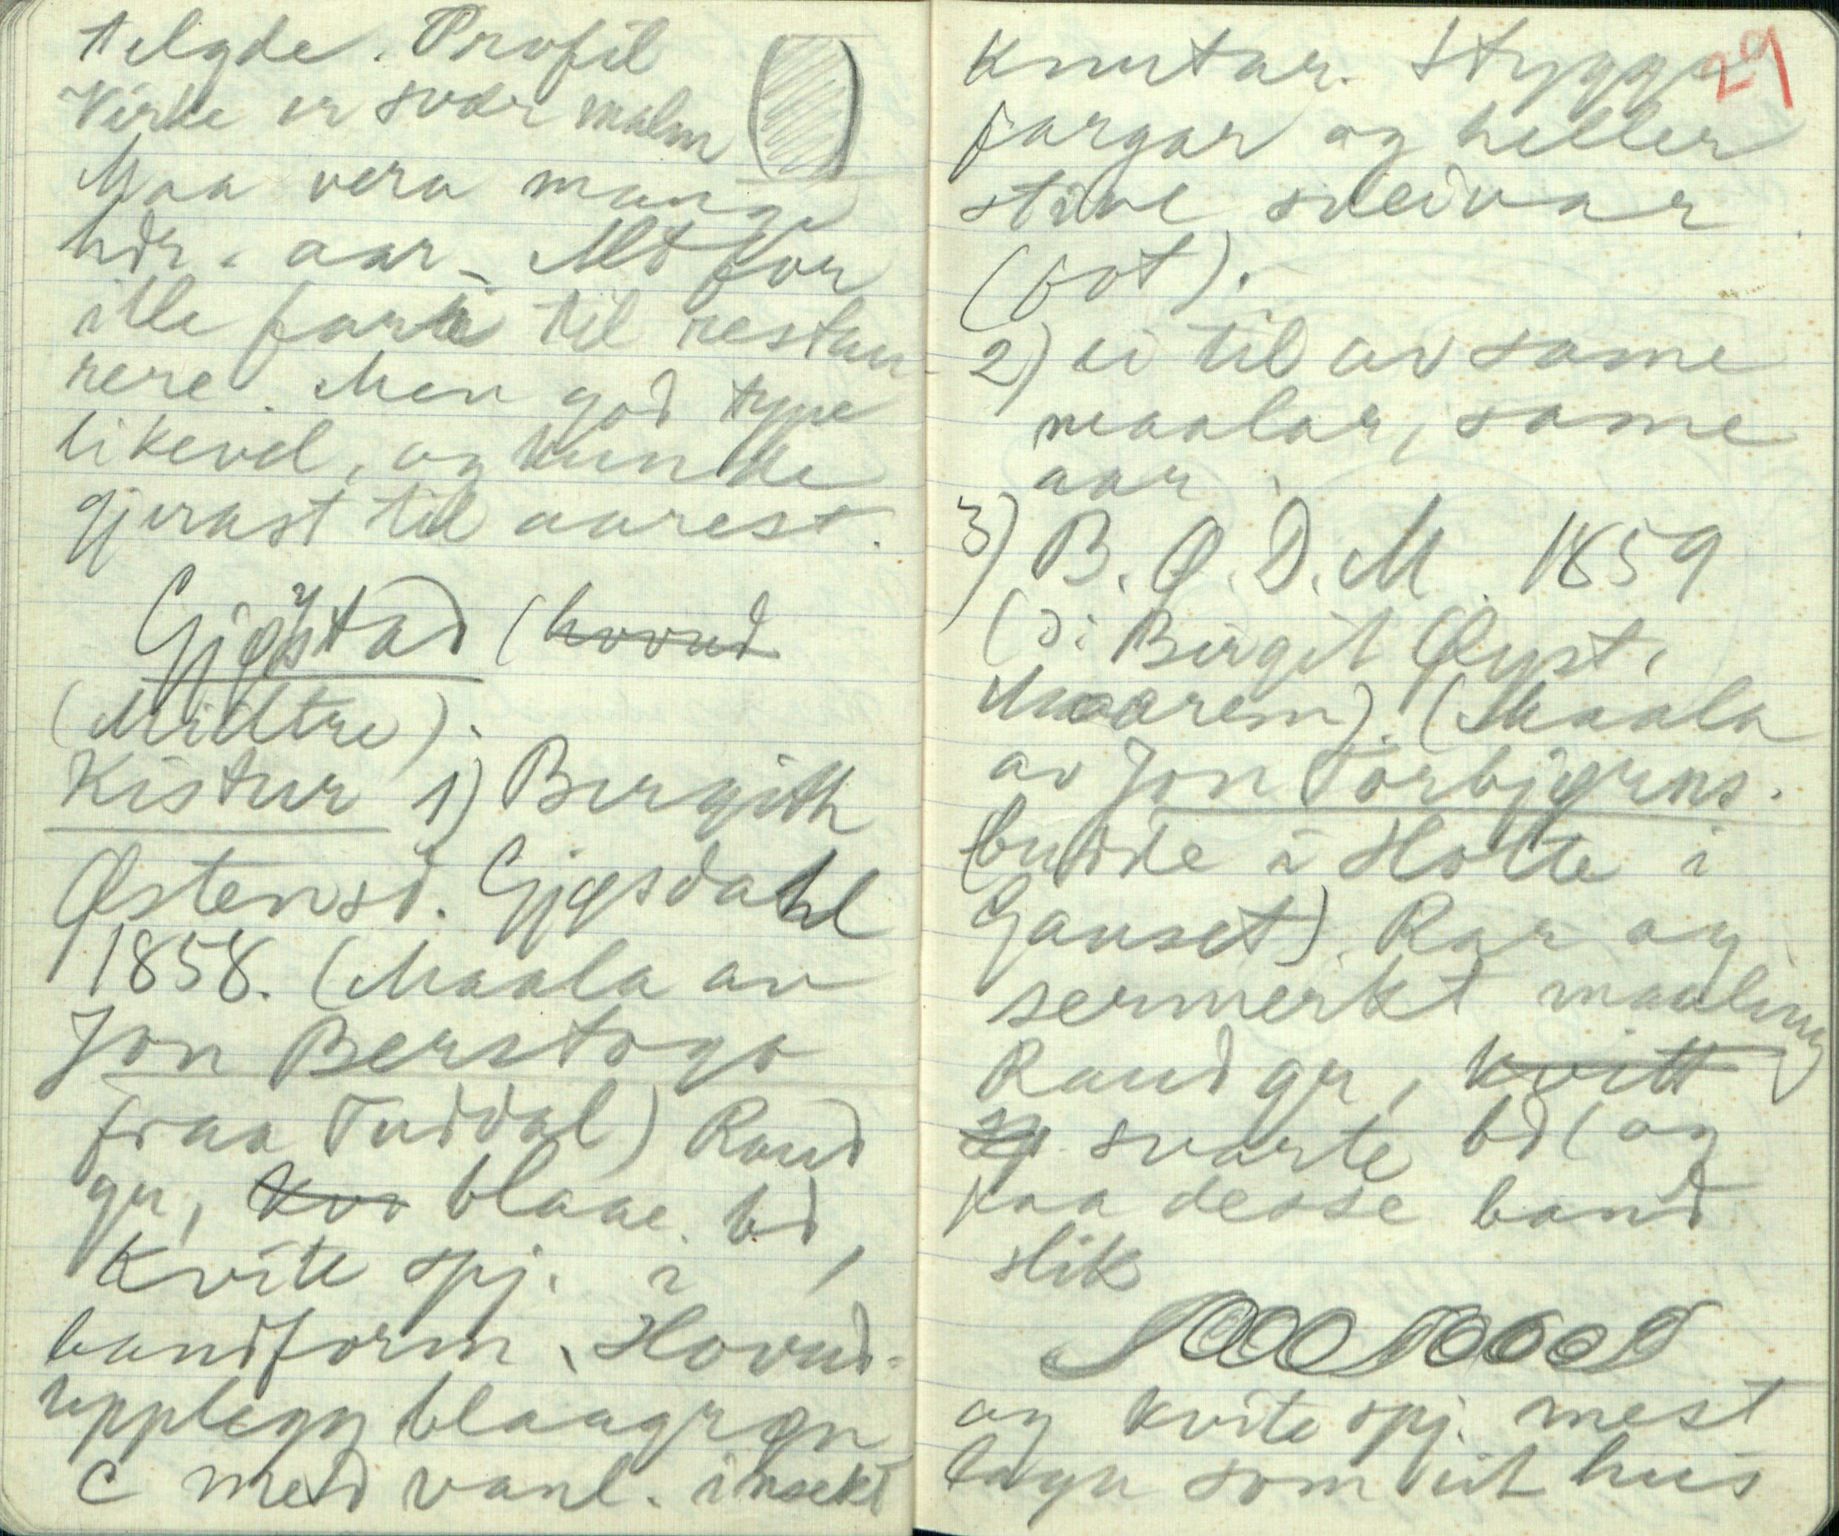 telgde. Profil
Virke er svær malm
Maa vera mange
hdr. aar. Alt for
ille fari til restau-
rere. Men god type
likevel, og kunde
gjerast til aarest.
Gjøystad (hovud
(Midtre).
Kistur 1) Birgith
Østensd. Gjøsdahl
1858. (Maala av
Jon Berstogo
fraa Tuddal) Raud
gr, kvi blaae bd,
Kvite spj. i
bandform, Hovud-
upplegg blaagrøn
C med vanl. insekt
29
Knutar. Stygge
fargar og heller
stive sveivar
(fot).
2) ei til av same
maalar, same
aar.
3) B. Ø. D. M. 1859
(ɔ: Birgit Øyst.
Maarem). (Maala
av Jon Torbjørns.
(budde i Holte i
Gauset). Rar og
sermerkt maaling
Raud gr, kvitt
svarte bd (og
paa desse band
slik
og kvite spj. mest
laga som eit hus